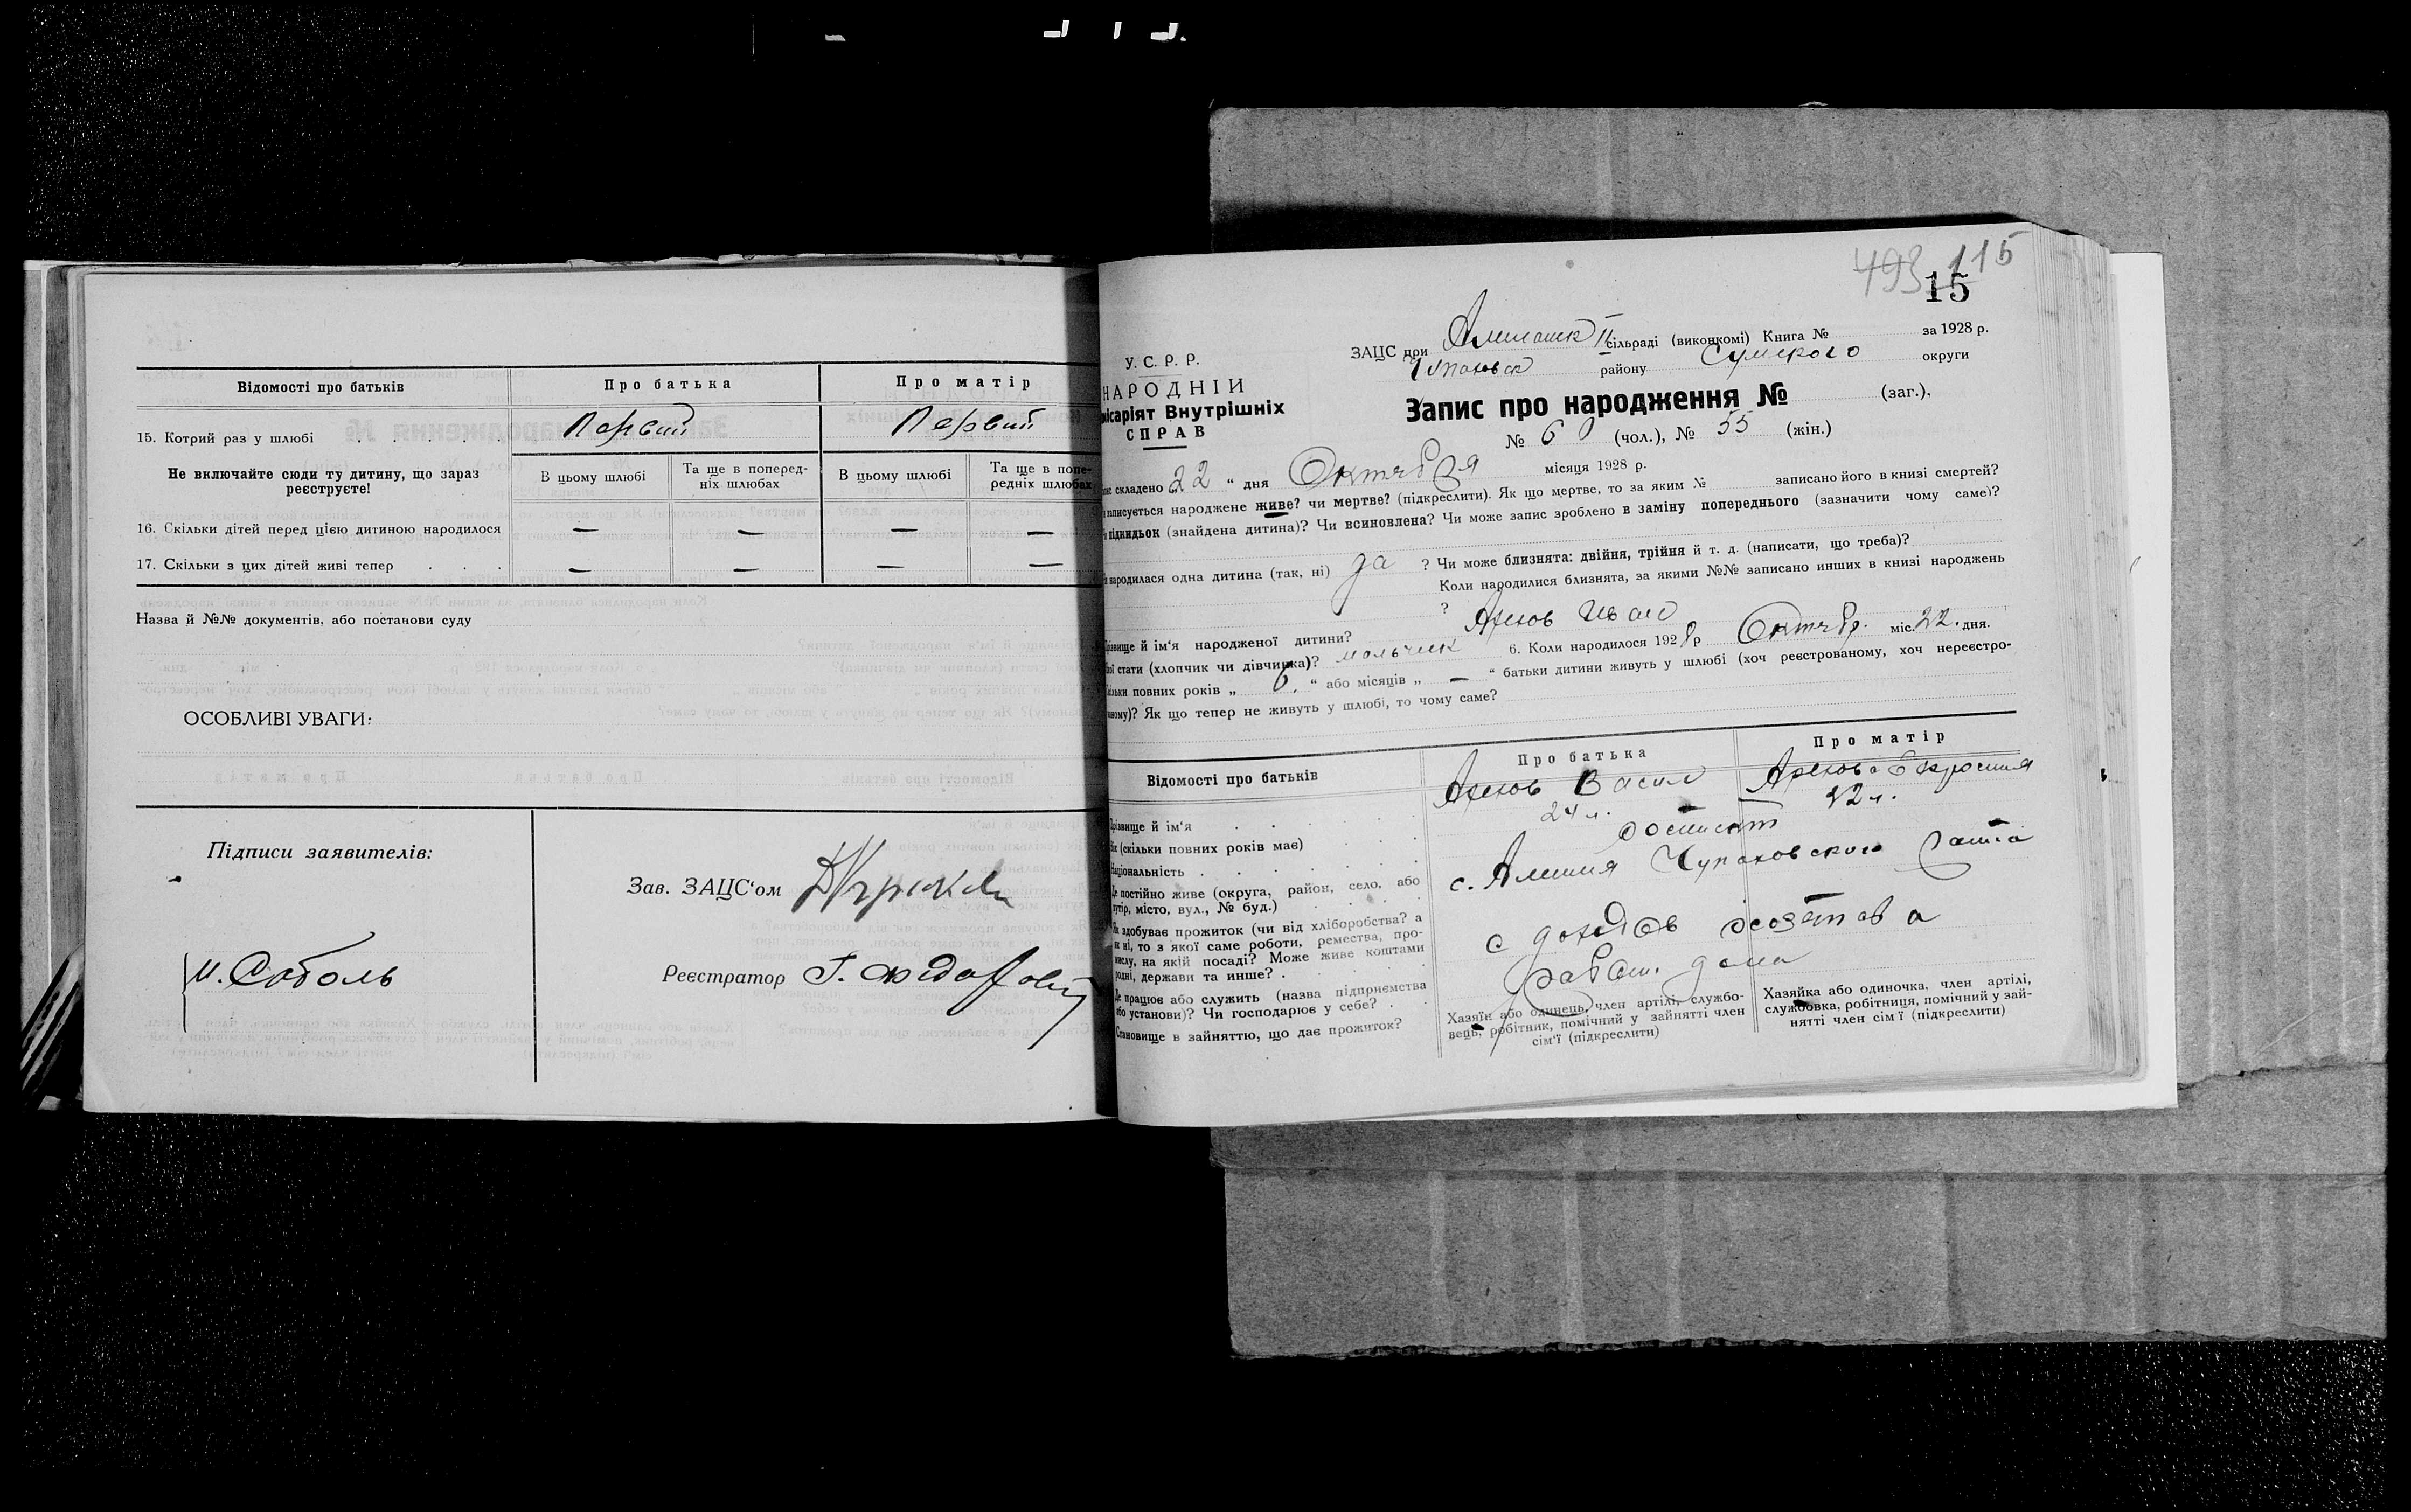 Відомості про батьків
Про батька
Про матір
15. Котрий раз у шлюбі
Первий
Первий
Не включайте сюди ту дитину, що зараз реєструєте!
В цьому шлюбі
Та ще в поперед-
ніх шлюбах
В цьому шлюбі
Та ще в попе-
редніх шлюбах
16. Скільки дітей перед цією дитиною народилося — — — —
17. Скільки з цих дітей живі тепер — — — —
Назва й №№ документів, або постанови суду
ОСОБЛИВІ УВАГИ:
Підписи заявителів:
И. Соболь
Зав. ЗАЦС'ом
Реєстратор
493 115
15
У. С. Р. Р.
НАРОДНІЙ
місаріят Внутрішніх
СПРАВ
ЗАЦС при сільраді (виконкомі) Книга № за 1928 р.
району Сумского округи
Запис про народження № (заг.),
№ 60 (чол.), № 55 (жін.)
складено 22 " дня Октября місяця 1928 р.
записується народжене живе? чи мертве? (підкреслити). Як що мертве, то за яким № записано його в книзі смертей?
підкидьок (знайдена дитина)? Чи всиновлена? Чи може запис зроблено в заміну попереднього (зазначити чому саме)?
народилася одна дитина (так, ні) да ? Чи може близнята: двійня, трійня й т. д. (написати, що треба)?
Коли народилися близнята, за якими №№ записано инших в книзі народжень
?
Прізвище й ім'я народженої дитини? Иван
стати (хлопчик чи дівчинка)? мальчик 6. Коли народилося 1928 р Октябр. міс. 22. дня.
Скільки повних років „ 6. " або місяців „ — " батьки дитини живуть у шлюбі (хоч реєстрованому, хоч нереєстро-
ваному)? Як що тепер не живуть у шлюбі, то чому саме?
Відомості про батьків
Про батька
Про матір
Прізвище й ім'я
24 л.
22 л.
(скільки повних років має)
Національність
Де постійно живе (округа, район, село, або
хутір, місто, вул., № буд.)
с. Алешня Чупаховского
Як здобуває прожиток (чи від хліборобства? а
як ні, то з якої саме роботи, ремества, про-
мислу, на якій посаді? Може живе коштами
родні, держави та инше?
Де працює або служить (назва підприємства
або установи)? Чи господарює у себе?
дома
Становище в зайняттю, що дає прожиток?
Хазяїн або одинець, член артілі, службо-
вець, робітник, помічний у зайнятті член
сім'ї (підкреслити)
Хазяйка або одиночка, член артілі,
службовка, робітниця, помічний у зай-
нятті член сім'ї (підкреслити)